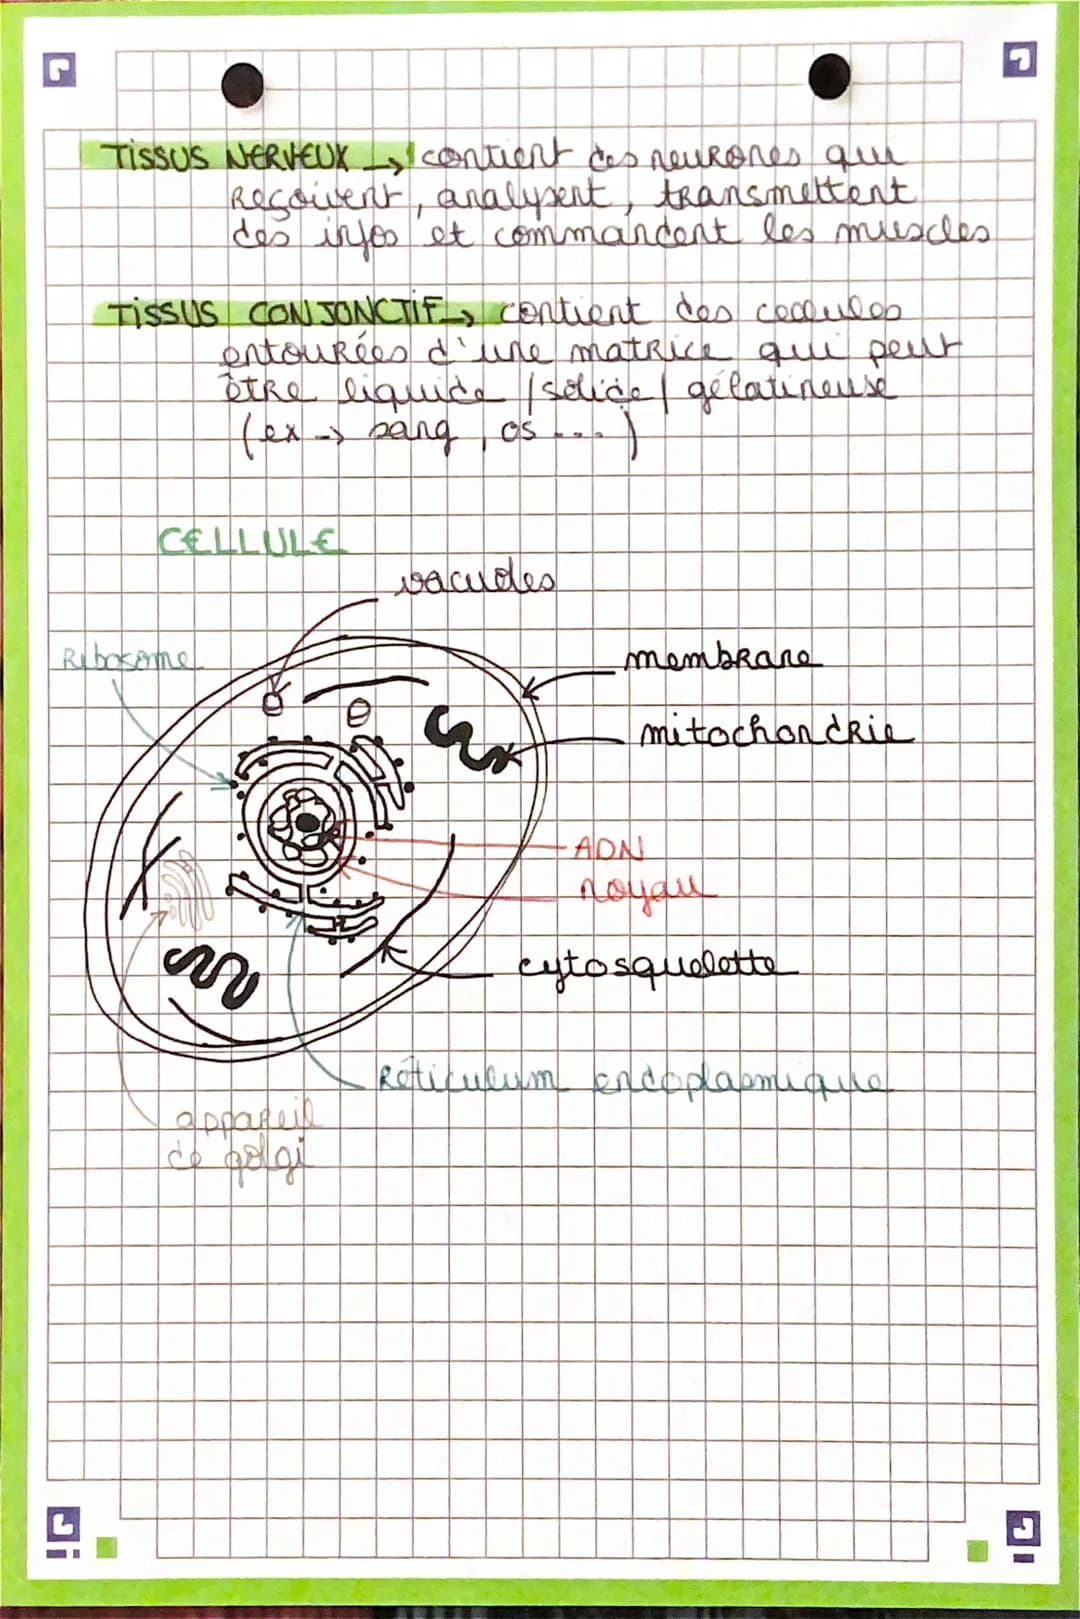 TISSUS NERVEUX → contient des neurones qui
reçoivent, analysent, transmettent
des infos et commandent les muscles
TISSUS CONJONCTIF → contient des cellules
entourées d'une matrice qui peut
être liquide / solide / gélatineuse
(ex → sang, os ...)
CELLULE
vacuoles
Ribosome
membrane
mitochondrie
ADN
noyau
cytosquelette
Réticulum endoplasmique
appareil
de golgi